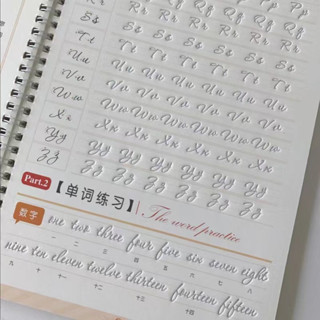 Rr Rr Rr Qq Qq Pp
Rr Rr Rr Rr Rr Rr
Ss Ss Ss Ss Ss Ss Ss
Tt Tt Tt Tt Tt Tt Tt
Uu Uu Uu Uu Uu Uu Uu
Vv Vv Vv Vv Vv Vv Vv
Ww Ww Ww Ww Ww Ww Ww
Xx Xx Xx Xx Xx Xx Xx
Yy Yy Yy Yy Yy Yy Yy
Zz Zz Zz Zz Zz Zz Zz
Part.2 【单词练习】 The word practice
数字 one two three four five six seven eight
一 二 三 四 五 六 七 八
nine ten eleven twelve thirteen fourteen fifteen
九 十 十一 十二 十三 十四